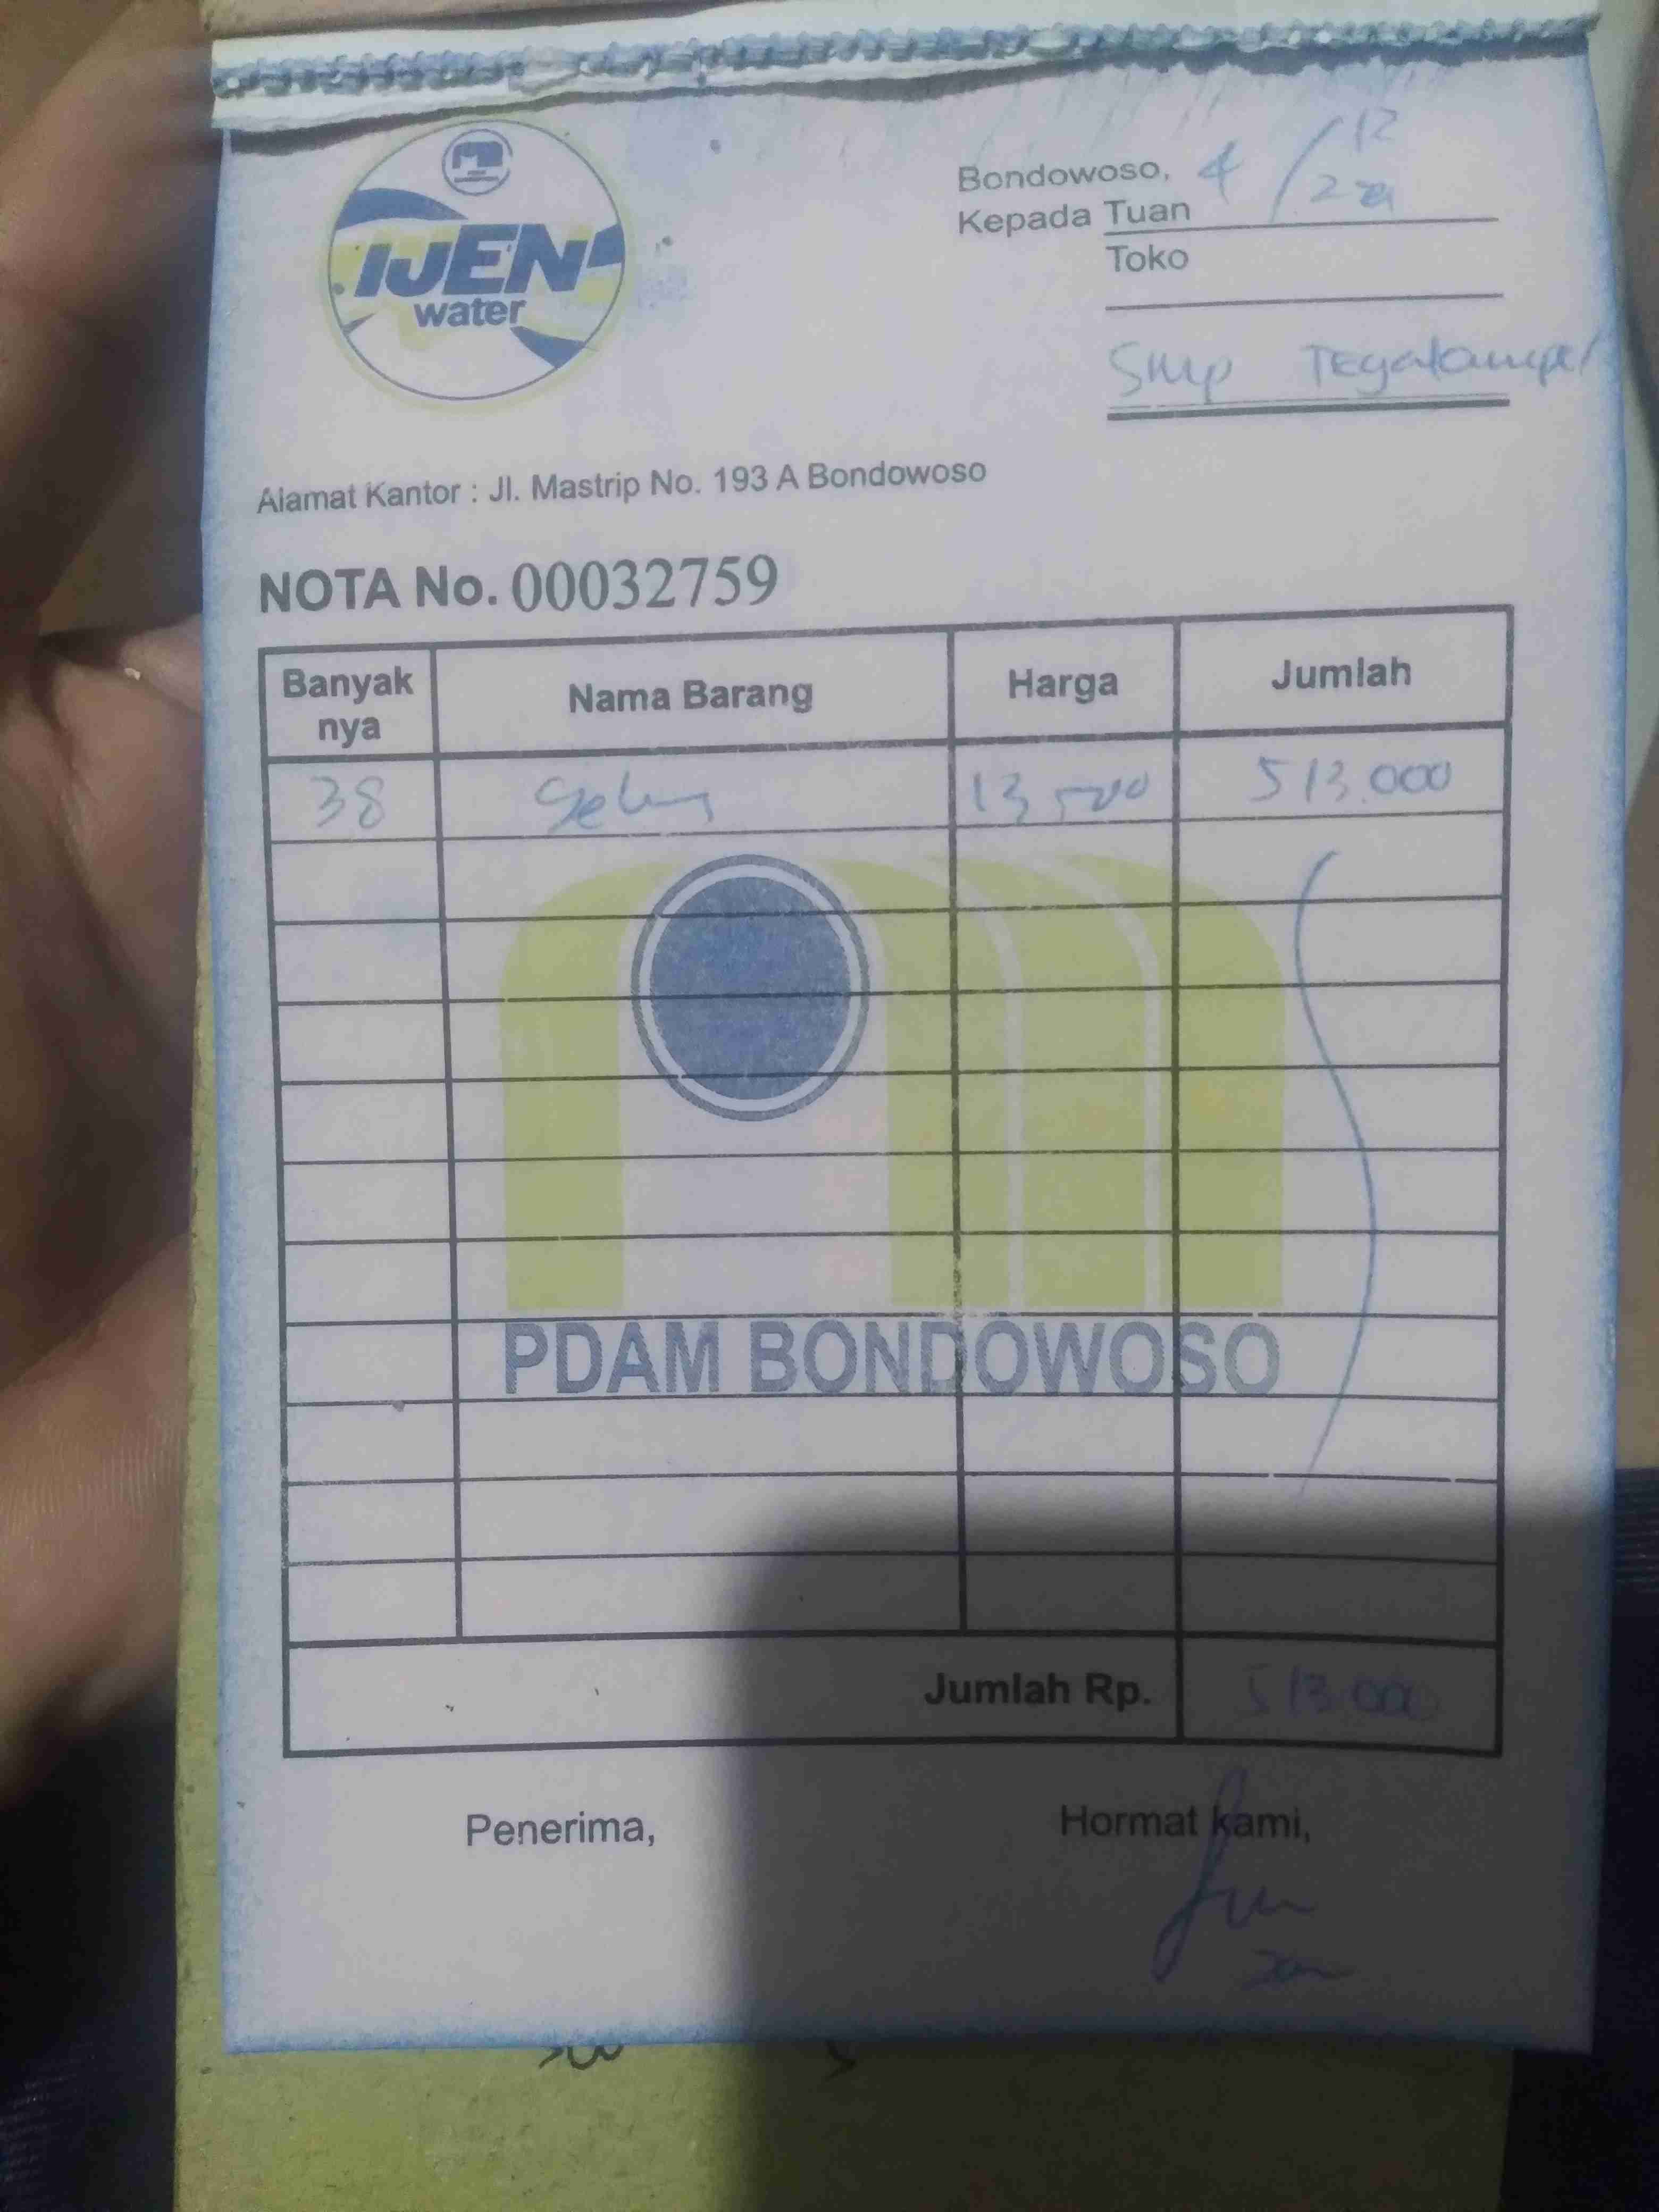 IJEN
water
Bondowoso, 4 / 12
Kepada Tuan
Toko
Smp Tegalampel
Alamat Kantor : Jl. Mastrip No. 193 A Bondowoso
NOTA No. 00032759
Banyak nya Nama Barang Harga Jumlah
38 13.500 513.000
PDAM BONDOWOSO
Jumlah Rp. 513.000
Penerima, Hormat kami,